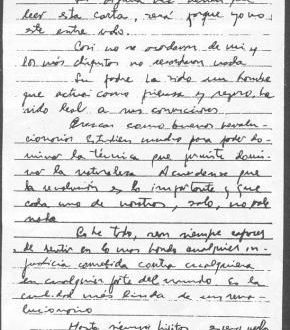 alguna vez tienen que
leer esta carta, será porque yo no
esté entre Uds.
Casi no se acordarán de mi y
los más chiquitos no recordarán nada
Su padre ha sido un hombre
que actúa como piensa y, seguro, ha
sido leal a sus convicciones.
Crezcan como buenos revolu-
cionarios. Estudien mucho para poder do-
minar la técnica que permite domi-
nar la naturaleza. Acuérdense que
la revolución es lo importante y que
cada uno de nosotros, solo, no vale
nada
Sobre todo, sean siempre capaces
de sentir en lo más hondo cualquier in-
justicia cometida contra cualquiera
en cualquier parte del mundo. Es la
cualidad más linda de un revo-
lucionario
Hasta siempre hijitos, espero verlos